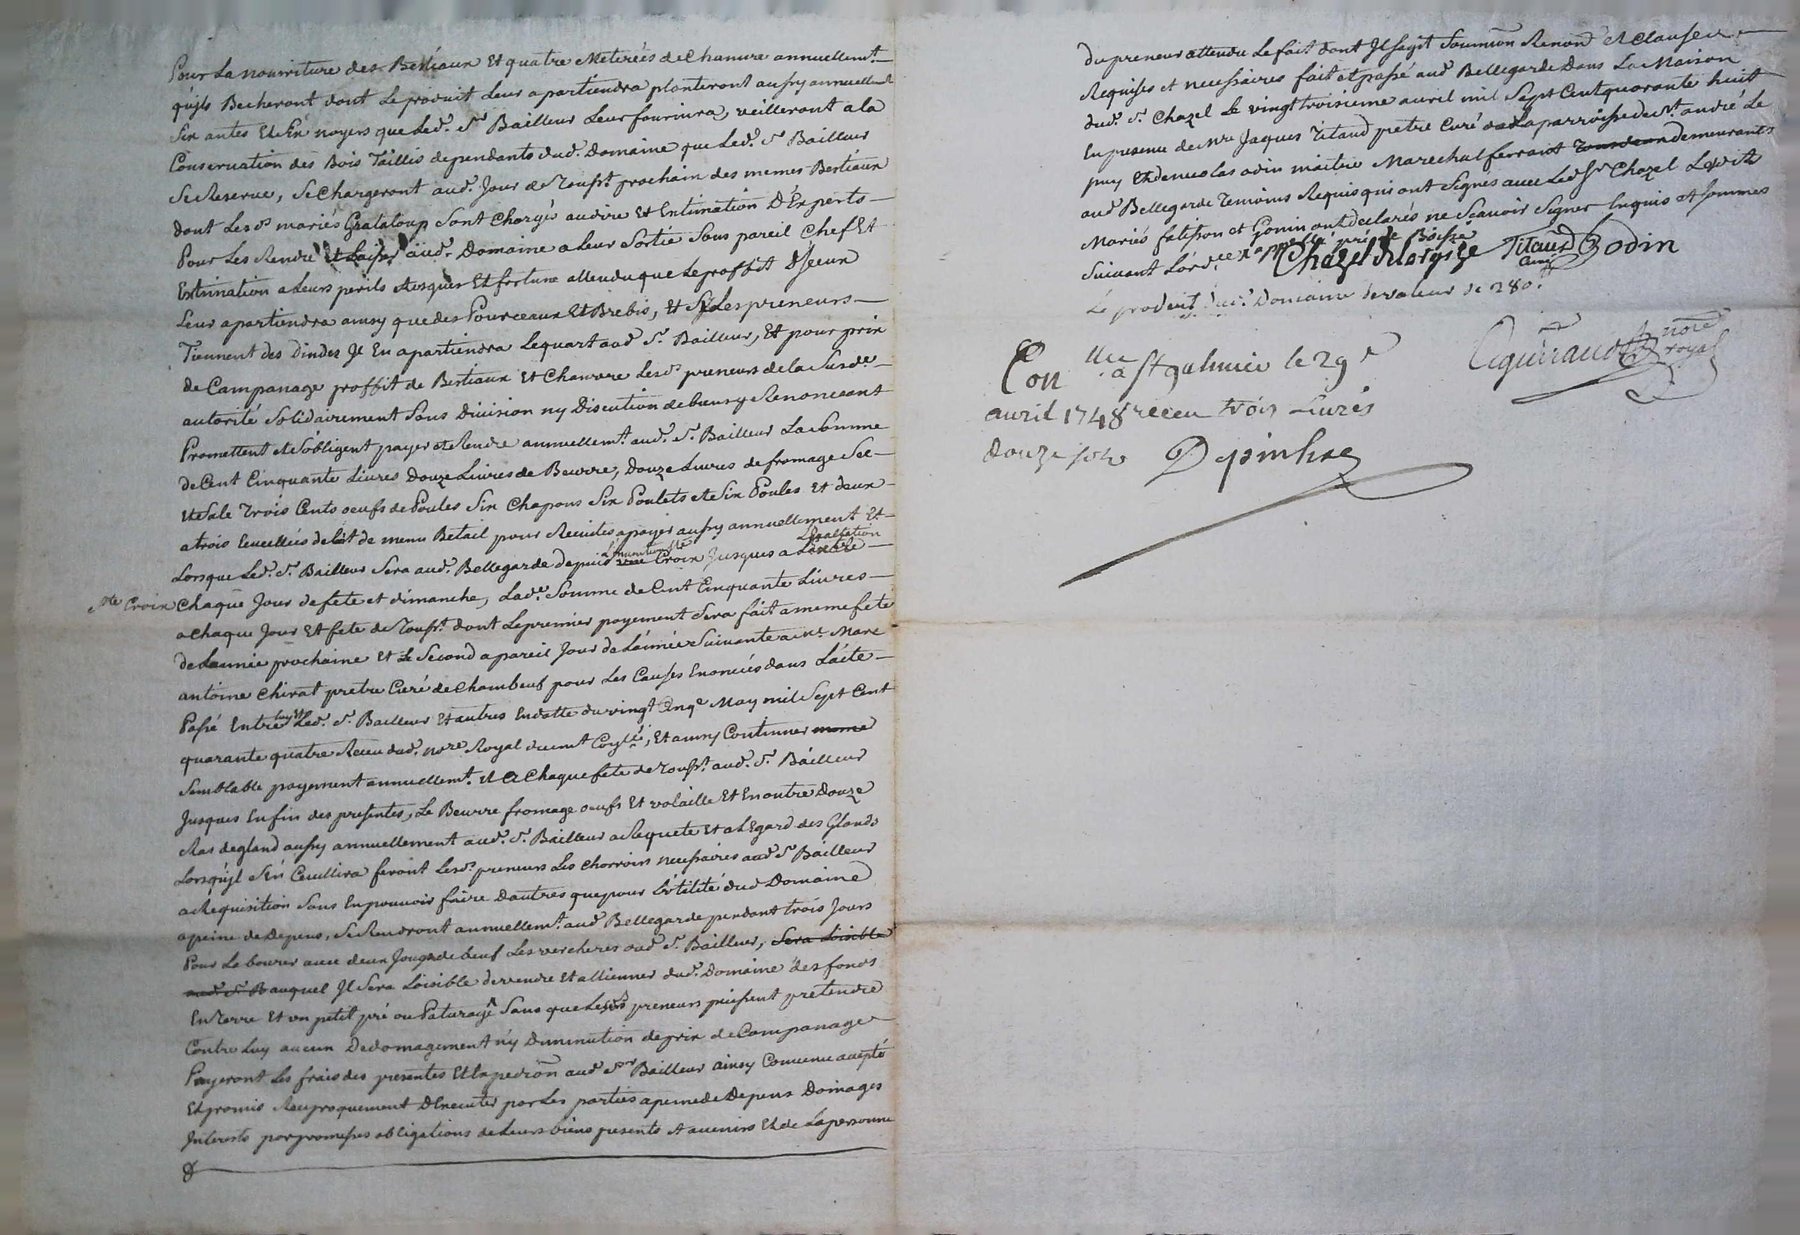 Pour La nourriture des Bestiaux Et quatre Meterées de Chanvre annuellemt.
qu'jls Becheront dont Le produit Leur apartiendra planteront aussy annuellemt
Six antes Et Six noyers que Led. Sr. Bailleur Leur fournira, veilleront a la
Conservation des Bois Taillis dependants dud. Domaine que Led. Sr Bailleur
Se Reserve, Se Chargeront aud. Jour de Toust. prochain des memes Bestiaux
dont Les d. mariés Grataloup Sont Chargés au dire Et Estimation D'Experts
Pour Les Rendre Et Laisser aud. Domaine a Leur Sortie Sous pareil Chef Et
Estimation a Leurs perils Risques Et fortune attendu que Le proffit D'Jceux
Leur apartiendra ainsy que des Pourceaux Et Brebis, Et Sy Les preneurs
Tiennent des Dindes Jl En apartiendra Le quart aud Sr. Bailleur, Et pour prix
de Campanage proffit de Bestiaux Et Chanvre Les d. preneurs de la Susd.
autorité Solidairement Sans Division ny Discution de biens y Renoncant
Promettent et S'obligent payer et Rendre annuellemt. aud. Sr. Bailleur La Somme
de Cent Cinquante Livres Douze Livres de Beurre, Douze Livres de fromage Sec
et Sale Trois Cents oeufs de Poules Six Chapons Six Poulets et Six Poules Et deux
a trois Ceuillies de lait de menu Betail pour Recuites a payer aussy annuellement Et
Lorsque Led. Sr. Bailleur Sera aud. Bellegarde depuis L'Jnvention Ste Croix Jusques a L'Exaltation
Ste Croix Chaque Jour de fete et dimanche, Lad. Somme de Cent Cinquante Livres
a Chaque Jour Et fete de Toust. dont Le premier payement Sera fait a meme fete
de L'année prochaine Et Le Second a pareil Jour de L'année Suivante a Mr. Marc
antoine Chirat pretre Curé de Chambeuf pour Les Causes Enoncées dans L'acte
Passé Entre luy Et Led. Sr. Bailleur Et autres En datte du vingt Cinqe May mil Sept Cent
quarante quatre Receu dud. nore Royal dument Collé, Et ainsy Continuer meme
Semblable payement annuellemt. Et a Chaque fete de Toust. aud. Sr. Bailleur
Jusques En fin des presentes, Le Beurre fromage oeufs Et volaille Et En outre Douze
Ras de gland aussy annuellement aud. Sr. Bailleur a Requete Et a L'Egard des Glands
Lorsqu'jl S'En Ceuillira feront Les d. preneurs Les Charrois necessaires aud Sr Bailleur
a Requisition Sans En pouvoir faire D'autres que pour L'utilité dud Domaine
a peine de Depens, Se Rendront annuellemt. aud Bellegarde pendant trois Jours
Pour Labourer avec deux Jougs de beuf Les vercheres aud Sr. Bailleur, Sera Loisible
aud. Sr. B auquel Jl Sera Loisible de vendre Et alliener dud. Domaine des fonds
En Terre Et un petit pré ou Paturage Sans que Lesd preneurs puissent pretendre
Contre Luy aucun Dedomagement ny Diminution de prix de Campanage
Payeront Les frais des presentes Et Expedion aud Sr Bailleur ainsy Convenu accepté
Et promis Reciproquement D'Executer par Les parties a peine de Depens Domages
Jnterests par promesses obligations de Leurs biens presents et avenirs Et de La personne
du preneur attendu Le fait dont Jl S'agit Soumion Renonon et Clauses
Requises et necessaires fait et passé aud. Bellegarde Dans La Maison
dud. Sr. Chazel Le vingt troisieme avril mil Sept Cent quarante huit
En presence de Mre Jaques Titaud pretre Curé de La parroisse de St. andré Le
puy Et de nicolas odin maitre Marechal ferrant demeurants
aud Bellegarde Temoins Requis qui ont Signes avec Led Sr Chazel Lesdits
Mariés fatisson et Gonin ont declarés ne Scavoir Signer Enquis et Sommes
Suivant L'ordce
Chazel Titaud Curé Bodin
Le produit dud. Domaine de valeur de 280.
Con lle a St galmier le 29e
avril 1748 receu trois Livres
Douze sols
nore royal